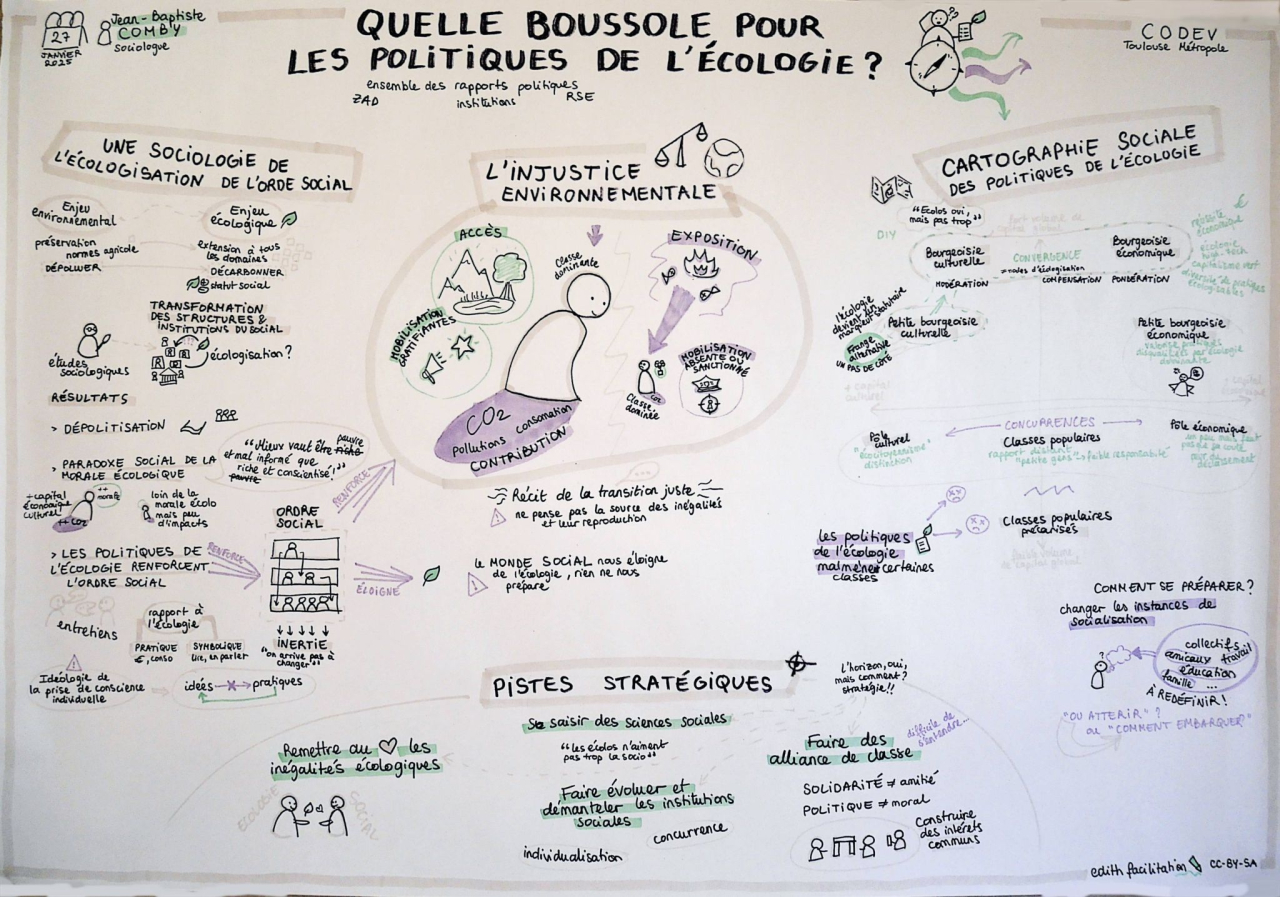 27
JANVIER
2025
Jean-Baptiste
COMBY
Sociologue
QUELLE BOUSSOLE POUR
LES POLITIQUES DE L'ÉCOLOGIE ?
ensemble des rapports politiques
ZAD institutions RSE
CODEV
Toulouse Métropole
UNE SOCIOLOGIE DE
L'ÉCOLOGISATION DE L'ORDE SOCIAL
Enjeu
environnemental
Enjeu
écologique
préservation
normes agricole
DÉPOLUER
extension à tous
les domaines
DÉCARBONNER
statut social
TRANSFORMATION
DES STRUCTURES &
INSTITUTIONS DU SOCIAL
études
sociologiques
écologisation ?
RÉSULTATS
> DÉPOLITISATION
> PARADOXE SOCIAL DE LA
MORALE ÉCOLOGIQUE
"Mieux vaut être riche pauvre
et mal informé que
riche et conscientisé !"
pauvre
+ capital
économique
culturel
++ morale
++ CO2
loin de la
morale écolo
mais peu
d'impacts
> LES POLITIQUES DE
L'ÉCOLOGIE RENFORCENT
L'ORDRE SOCIAL
RENFORCE
ORDRE
SOCIAL
RENFORCE
ÉLOIGNE
INERTIE
"on arrive pas à
changer"
entretiens
rapport à
l'écologie
PRATIQUE
€, conso
SYMBOLIQUE
lire, en parler
Idéologie de
la prise de conscience
individuelle
idées pratiques
L'INJUSTICE
ENVIRONNEMENTALE
ACCÈS
MOBILISATION
GRATIFIANTES
Classe
dominante
EXPOSITION
MOBILISATION
ABSENTE OU
SANCTIONNÉ
Classe
dominée
CO2
CO2
Pollutions consomation
CONTRIBUTION
Récit de la transition juste
ne pense pas la source des inégalités
et leur reproduction
le MONDE SOCIAL nous éloigne
de l'écologie, rien ne nous
prépare
CARTOGRAPHIE SOCIALE
DES POLITIQUES DE L'ÉCOLOGIE
"Ecolos oui,
mais pas trop"
DIY
Fort volume de
capital global
Bourgeoisie
culturelle
CONVERGENCE
= modes d'écologisation
Bourgeoisie
économique
MODÉRATION
COMPENSATION
PONDÉRATION
réussite
économique
écologie
high-tech
capitalisme vert
diversité de pratiques
écologisables
l'écologie
devient un
marqueur statutaire
Frange
alternative
UN PAS DE CÔTÉ
Petite bourgeoisie
culturelle
Petite bourgeoisie
économique
valorise pratiques
disqualifiés par écologie
dominante
+ capital
culturel
+ capital
économique
CONCURRENCES
Pôle
culturel
"écocitoyennisme"
distinction
Classes populaires
rapport distant
"petits gens" → faible responsabilité
Pôle économique
les politiques
de l'écologie
malmènent certaines
classes
Classes populaires
précarisés
Faible volume
de capital global
COMMENT SE PRÉPARER ?
changer les instances de
socialisation
collectifs
amicaux travail
éducation
famille ...
À REDÉFINIR !
"OU ATTERIR" ?
ou "COMMENT EMBARQUER ?"
PISTES STRATÉGIQUES
L'horizon, oui,
mais comment ?
stratégie !!
Remettre au ♡ les
inégalités écologiques
ECOLOGIE
SOCIAL
Se saisir des sciences sociales
"les écolos n'aiment
pas trop la socio"
Faire évoluer et
démanteler les institutions
sociales
concurrence
individualisation
Faire des
alliance de classe
difficile de
s'entendre...
SOLIDARITÉ ≠ amitié
POLITIQUE ≠ moral
Construire
des intérêts
communs
edith facilitation CC-BY-SA